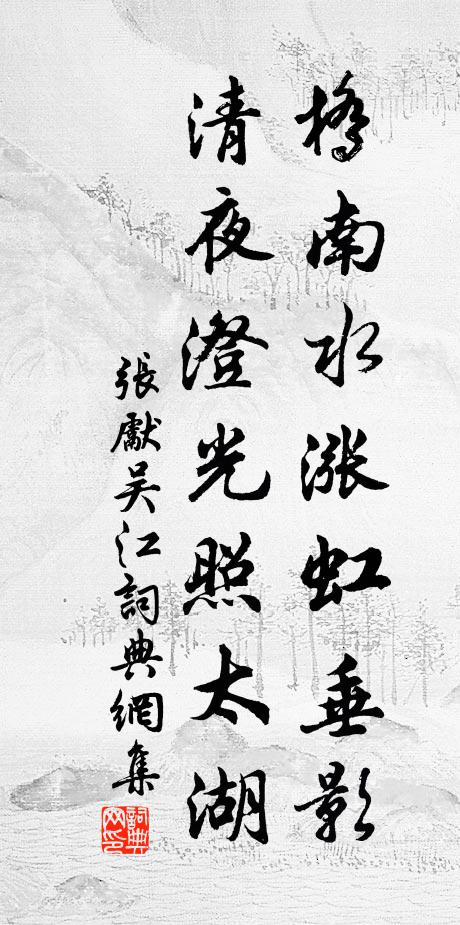 橋南水漲虹垂影
清夜澄光照太湖
張獻吳江詞典網集
詞典
网印